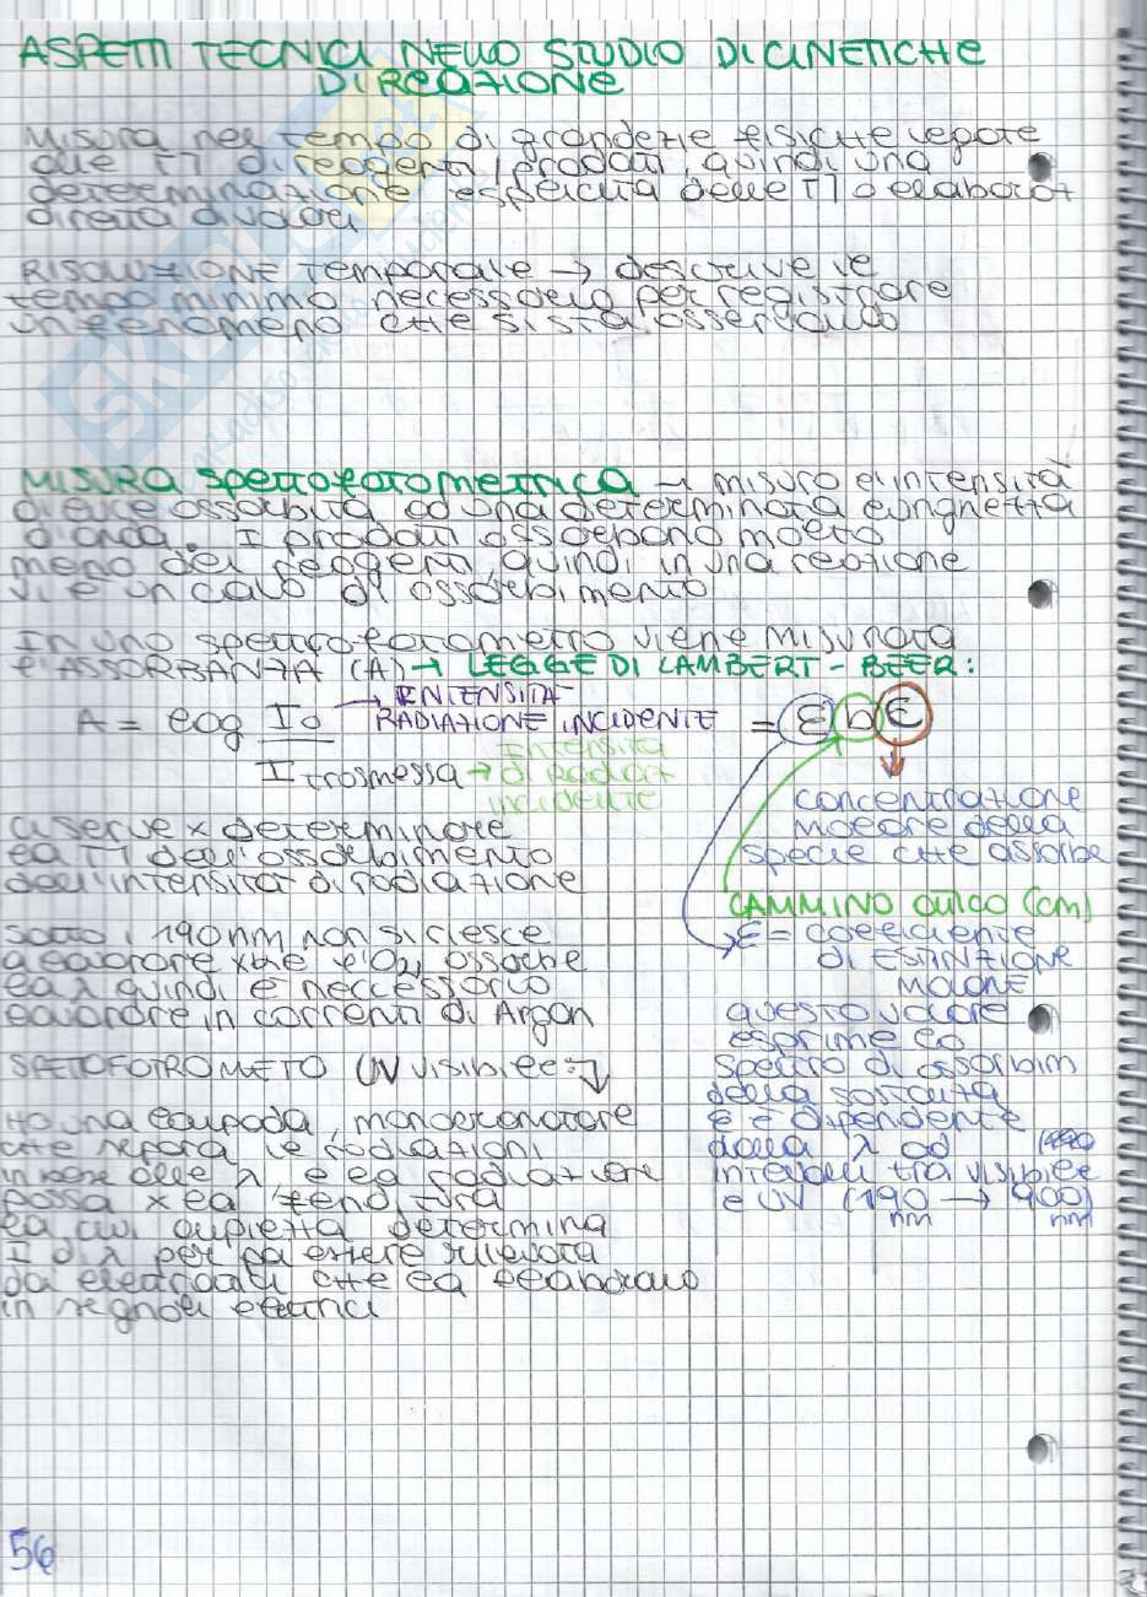 ASPETTI TECNICI NELLO STUDIO DI CINETICHE
DI REAZIONE
Misura nel tempo di grandezze fisiche legate
alle M di reagenti/prodotti, quindi una
determinazione esplicita delle M o elaboraz
diretta di valori
RISOLUZIONE Temporale → descrive il
tempo minimo necessario per registrare
un fenomeno che si sta osservando
MISURA Spettrofotometrica → misuro l'intensità
di luce assorbita ad una determinata lunghezza
d'onda. I prodotti assorbono molto
meno dei reagenti, quindi in una reazione
vi è un calo di assorbimento
In uno spettrofotometro viene misurata
l'ASSORBANZA (A) → LEGGE DI LAMBERT - BEER:
A = log Io → INTENSITÀ
RADIAZIONE INCIDENTE = ε b C
I trasmessa → Intensità
di radiaz
incidente
concentrazione
molare della
specie che assorbe
CAMMINO OTTICO (cm)
ε = coefficiente
DI ESTINZIONE
MOLARE
questo valore
esprime lo
spettro di assorbim
della sostanza
ε è dipendente
dalla λ ad
intervalli tra visibile
e UV (190 → 900)
nm nm
ci serve x determinare
la M dell'assorbimento
dell'intensità di radiazione
sotto i 190nm non si riesce
a lavorare xké l'O2 assorbe
la λ quindi è neccessario
lavorare in correnti di Argon
SPETTOFOTROMETO UV visibile:
Ho una lampada, monocromatore
che separa le radiazioni
in base alle λ, e la radiazione
passa x la fenditura
la cui ampiezza determina
I di λ per poi essere rilevata
che la elaborano
in segnali elettrici
56